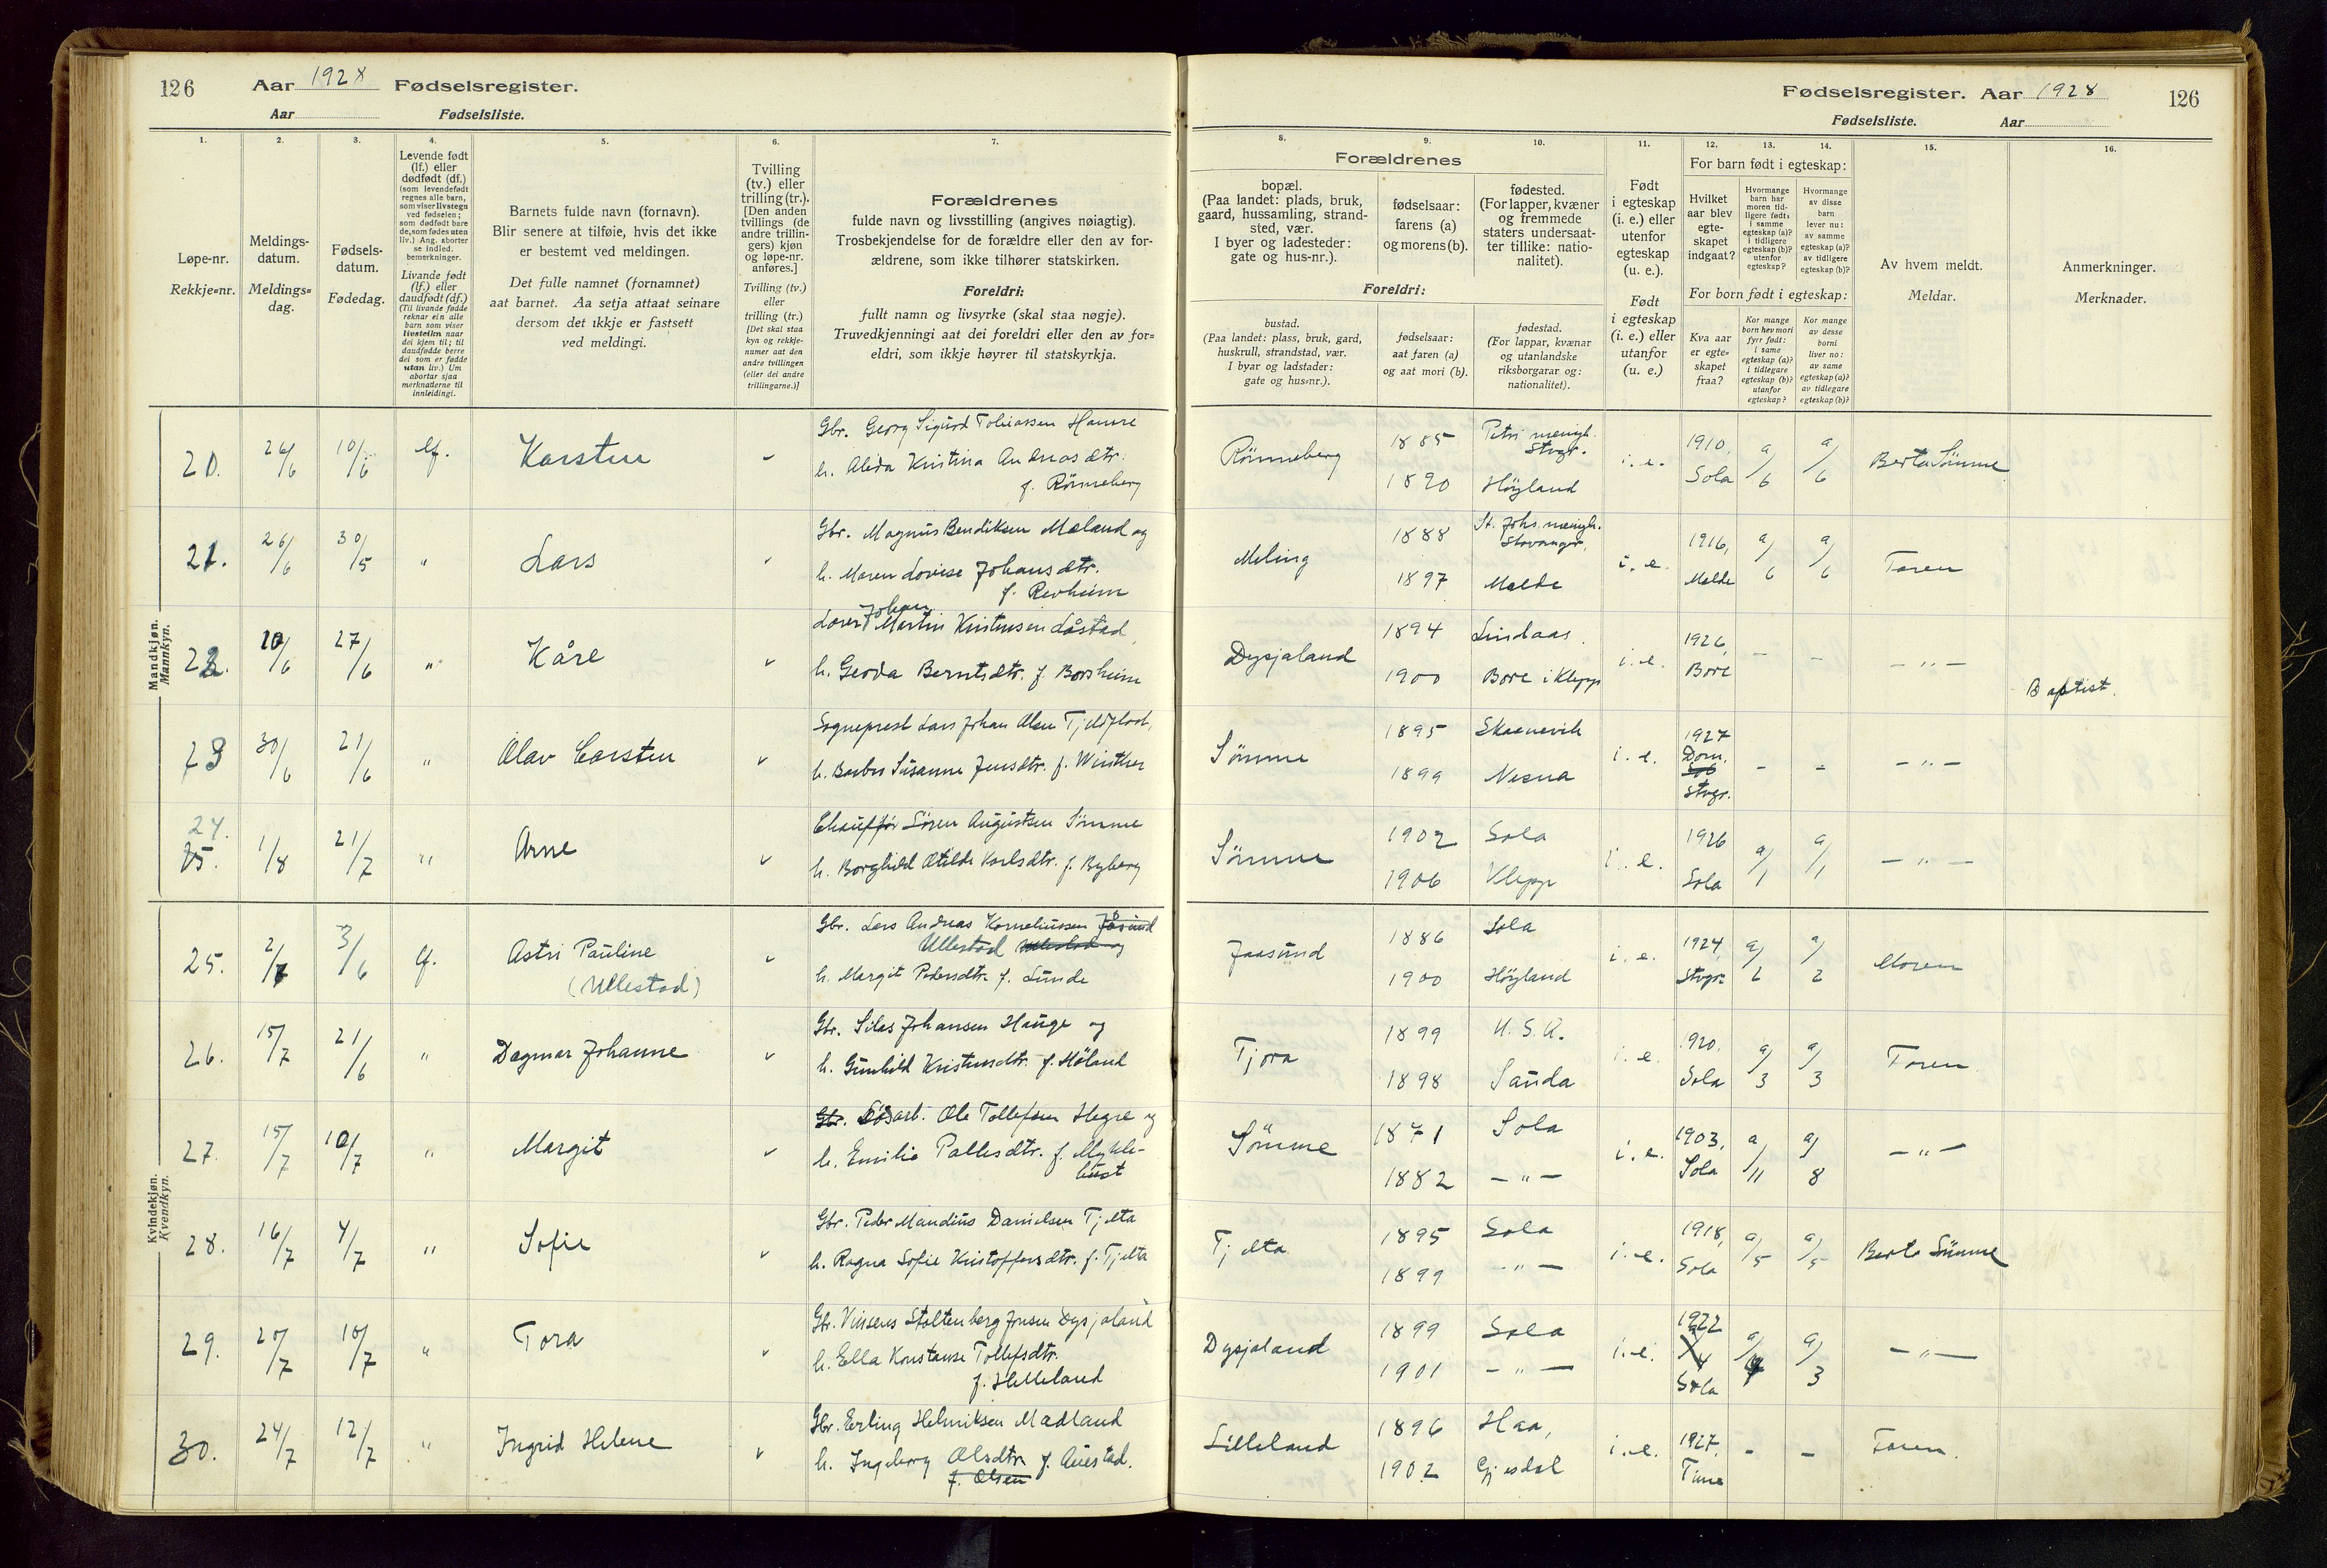 126
Aar 1928 Fødselsregister.
Aar Fødselsliste.
Fødselsregister. Aar 1928
126
Fødselsliste. Aar
1. 2. 3. 4. 5. 6. 7.
Løpe-nr.
Rekkje=nr.
Meldings-
datum.
Meldings=
dag.
Fødsels-
datum.
Fødedag.
Levende født
(lf.) eller
dødfødt (df.)
(som levendefødt
regnes alle barn,
som viser livstegn
ved fødselen;
som dødfødt bare
de, som fødes uten
liv.) Ang. aborter
se indled.
bemerkninger.
Livande født
(lf.) eller
daudfødt (df.)
(Til livande fødde
reknar ein alle
barn som viser
livsteikn naar
dei kjem til; til
daudfødde berre
dei som er fødde
utan liv.) Um
abortar sjaa
merknaderne til
innleidingi.
Barnets fulde navn (fornavn).
Blir senere at tilføie, hvis det ikke
er bestemt ved meldingen.
Det fulle namnet (fornamnet)
aat barnet. Aa setja attaat seinare
dersom det ikkje er fastsett
ved meldingi.
Tvilling
(tv.) eller
trilling (tr.).
[Den anden
tvillings (de
andre trillin-
gers) kjøn
og løpe-nr.
anføres.]
Tvilling (tv.)
eller
trilling (tr.)
[Det skal staa
kyn og rekkje-
numer aat den
andre tvillingen
(eller dei andre
trillingarne.)]
Forældrenes
fulde navn og livsstilling (angives nøiagtig).
Trosbekjendelse for de forældre eller den av for-
ældrene, som ikke tilhører statskirken.
Foreldri:
fullt namn og livsyrke (skal staa nøgje).
Truvedkjenningi aat dei foreldri eller den av for=
eldri, som ikkje høyrer til statskyrkja.
8. 9. 10. 11. 12. 13. 14. 15. 16.
Forældrenes
bopæl.
(Paa landet: plads, bruk,
gaard, hussamling, strand-
sted, vær.
I byer og ladesteder:
gate og hus-nr.).
fødselsaar:
farens (a)
og morens (b).
fødested.
(For lapper, kvæner
og fremmede
staters undersaat-
ter tillike: natio-
nalitet).
Foreldri:
bustad.
(Paa landet: plass, bruk, gard,
huskrull, strandstad, vær.
I byar og ladstader:
gate og hus=nr.).
fødselsaar:
aat faren (a)
og aat mori (b).
fødestad.
(For lappar, kvænar
og utanlandske
riksborgarar og:
nationalitet).
Født
i egteskap
(i. e.) eller
utenfor
egteskap
(u. e.).
Født
i egteskap
(i. e.) eller
utanfor
egteskap
(u. e.)
For barn født i egteskap:
Hvilket
aar blev
egte-
skapet
indgaat?
Hvormange
barn har
moren tid-
ligere født:
i samme
egteskap (a)?
i tidligere
egteskap (b)?
utenfor
egteskap?
Hvormange
av disse
barn
lever nu:
av samme
egteskap (a)?
av tidligere
egteskap (b)?
For born født i egteskap:
Kva aar
er egte=
skapet
fraa?
Kor mange
born hev mori
fyrr født:
i same
egteskap (a)?
i tidlegare
egteskap (b)?
utanfor
egteskap?
Kor mange
av desse
borni
liver no:
av same
egteskap (a)?
av tidlegare
egteskap (b)?
Av hvem meldt.
Meldar.
Anmerkninger.
Merknader.
Mandkjøn.
Mannkyn.
20. 26/6 10/6 lf. Karsten Gbr. Georg Sigurd Tobiassen Hamre
h. Alida Kristina Andreasdtr.
f. Rönneberg
Rönneberg 1885 Petri menigh. Stvgr. i. e. 1910, a/6 a/6 Berta Sömme
1890 Höyland Sola
21. 26/6 30/5 " Lars Gbr. Magnus Bendiksen Meland og
h. Maren Lovise Johansdtr.
f. Revheim
Meling 1888 St. Johs. menigh. Stavanger, i. e. 1916, a/6 a/6 Faren
1897 Malde Malde
22. 10/6 27/6 " Kåre Johan
Lærer Martin Kristensen Låstad
h. Gerda Berntsdtr. f. Borsheim
Dysjaland 1894 Lindaas. i. e. 1926, – – – " –
1900 Bore i Klepp Bore
Baptist.
23 30/6 21/6 " Olav Carsten Sogneprest Lars Johan Olsen Tjeldflaat,
h. Barbro Susanne Jensdtr. f. Winther
Sömme 1895 Skaanevik i. e. 1927 – – – " –
1899 Nesna Dom. Stvgr.
24.
25. 1/8 21/7 " Arne Chauffør Sören Augustsen Sömme
h. Borghild Otilde Karlsdtr. f. Byberg
Sömme 1902 Sola i. e. 1926 a/1 a/1 – " –
1906 Klepp Sola
Kvindekjøn.
Kvendkyn.
25. 2/7 3/6 lf. Astri Pauline
(Ullestad)
Gbr. Lars Andreas Korneliussen Jåsund
Ullestad Ullestad og
h. Margit Pedersdtr. f. Lunde
Jaasund 1886 Sola i. e. 1924, a/2 a/2 Moren
1900 Höyland Stvgr.
26. 15/7 21/6 " Dagmar Johanne Gbr. Silas Johansen Hauge og
h. Gunhild Kristensdtr. f. Höland
Tjora 1899 U. S. A. i. e. 1920, a/3 a/3 Faren
1898 Sauda Sola
27. 15/7 10/7 " Margit Gbr. Lösarb. Ole Tollefsen Hegre og
h. Emilie Pallesdtr. f. Mykle-
bust
Sömme 1871 Sola i. e. 1903, a/11 a/8 – " –
1882 – " – Sola
28. 16/7 4/7 " Sofie Gbr. Peder Mandius Danielsen Tjelta
h. Ragna Sofie Kristoffersdtr. f. Tjelta
Tjelta 1895 Sola i. e. 1918, a/5 a/5 Berta Sömme
1899 – " – Sola
29. 20/7 10/7 " Tora Gbr. Vinsens Stoltenberg Jonsen Dysjaland
h. Ella Konstanse Tollefsdtr.
f. Helleland
Dysjaland 1899 Sola i. e. 1922 a/4 a/3 – " –
1901 – " – Sola
30. 24/7 12/7 " Ingrid Helene Gbr. Erling Helmiksen Madland
h. Ingeborg Olsdtr. f. Auestad.
f. Olsen
Lilleland 1896 Haa, i. e. 1927, – – Faren.
1902 Gjesdal Time